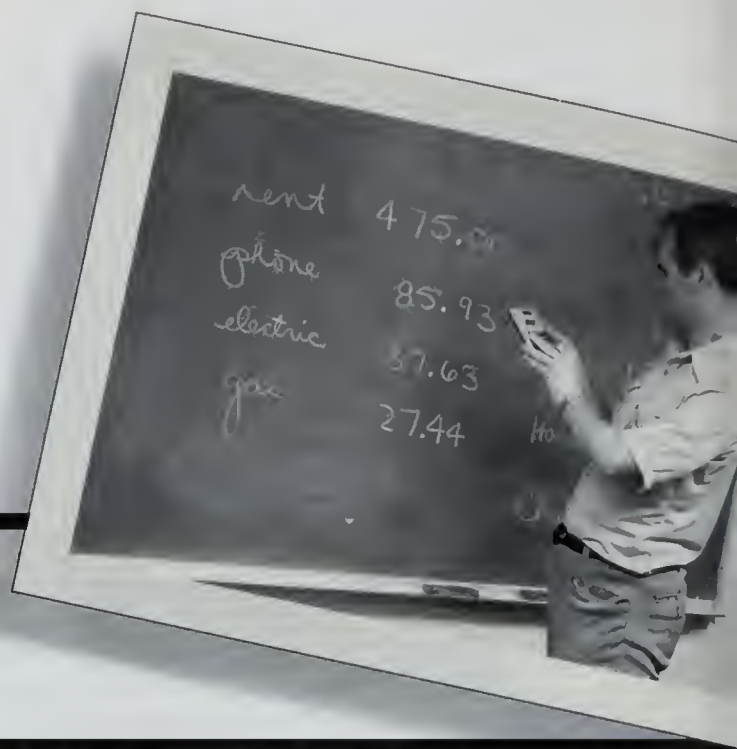 rent 475.00
phone 85.93
electric 37.63
gas 27.44